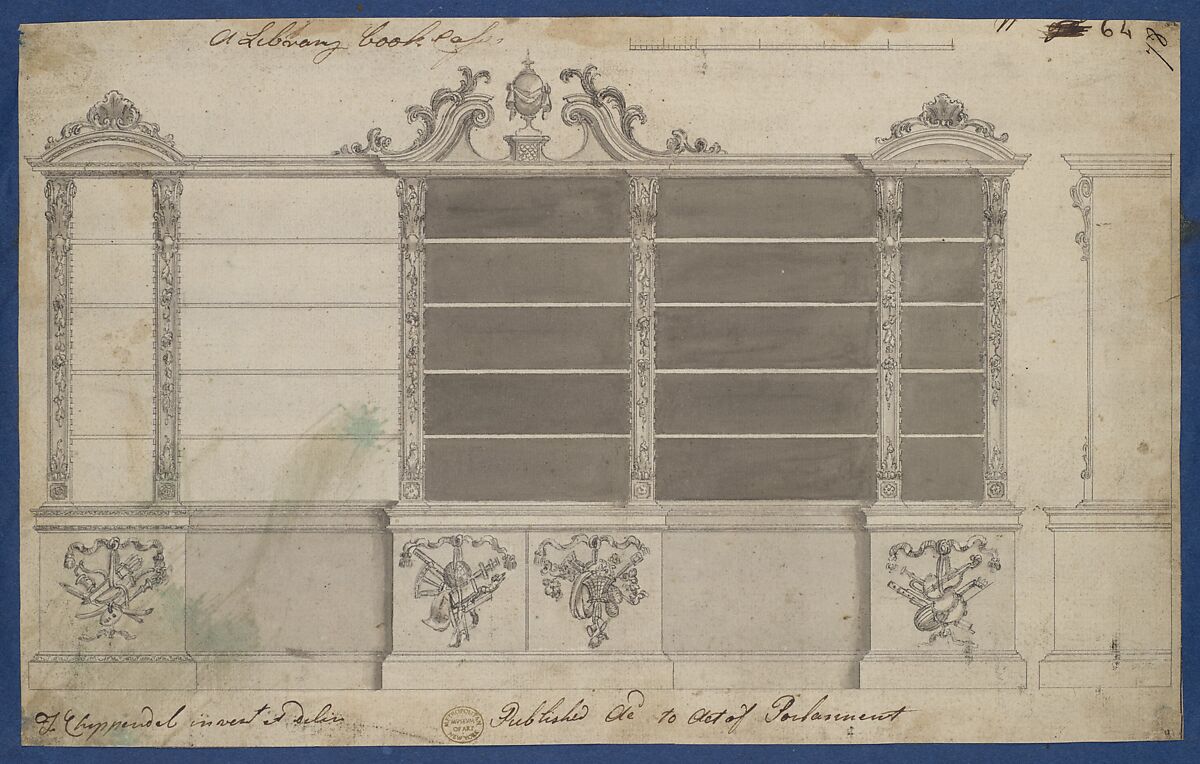 A Library book Case
N 64
81
T Chippendel invent et delin
METROPOLITAN MUSEUM OF ART NEW YORK
Published Acd to Act of Parliament